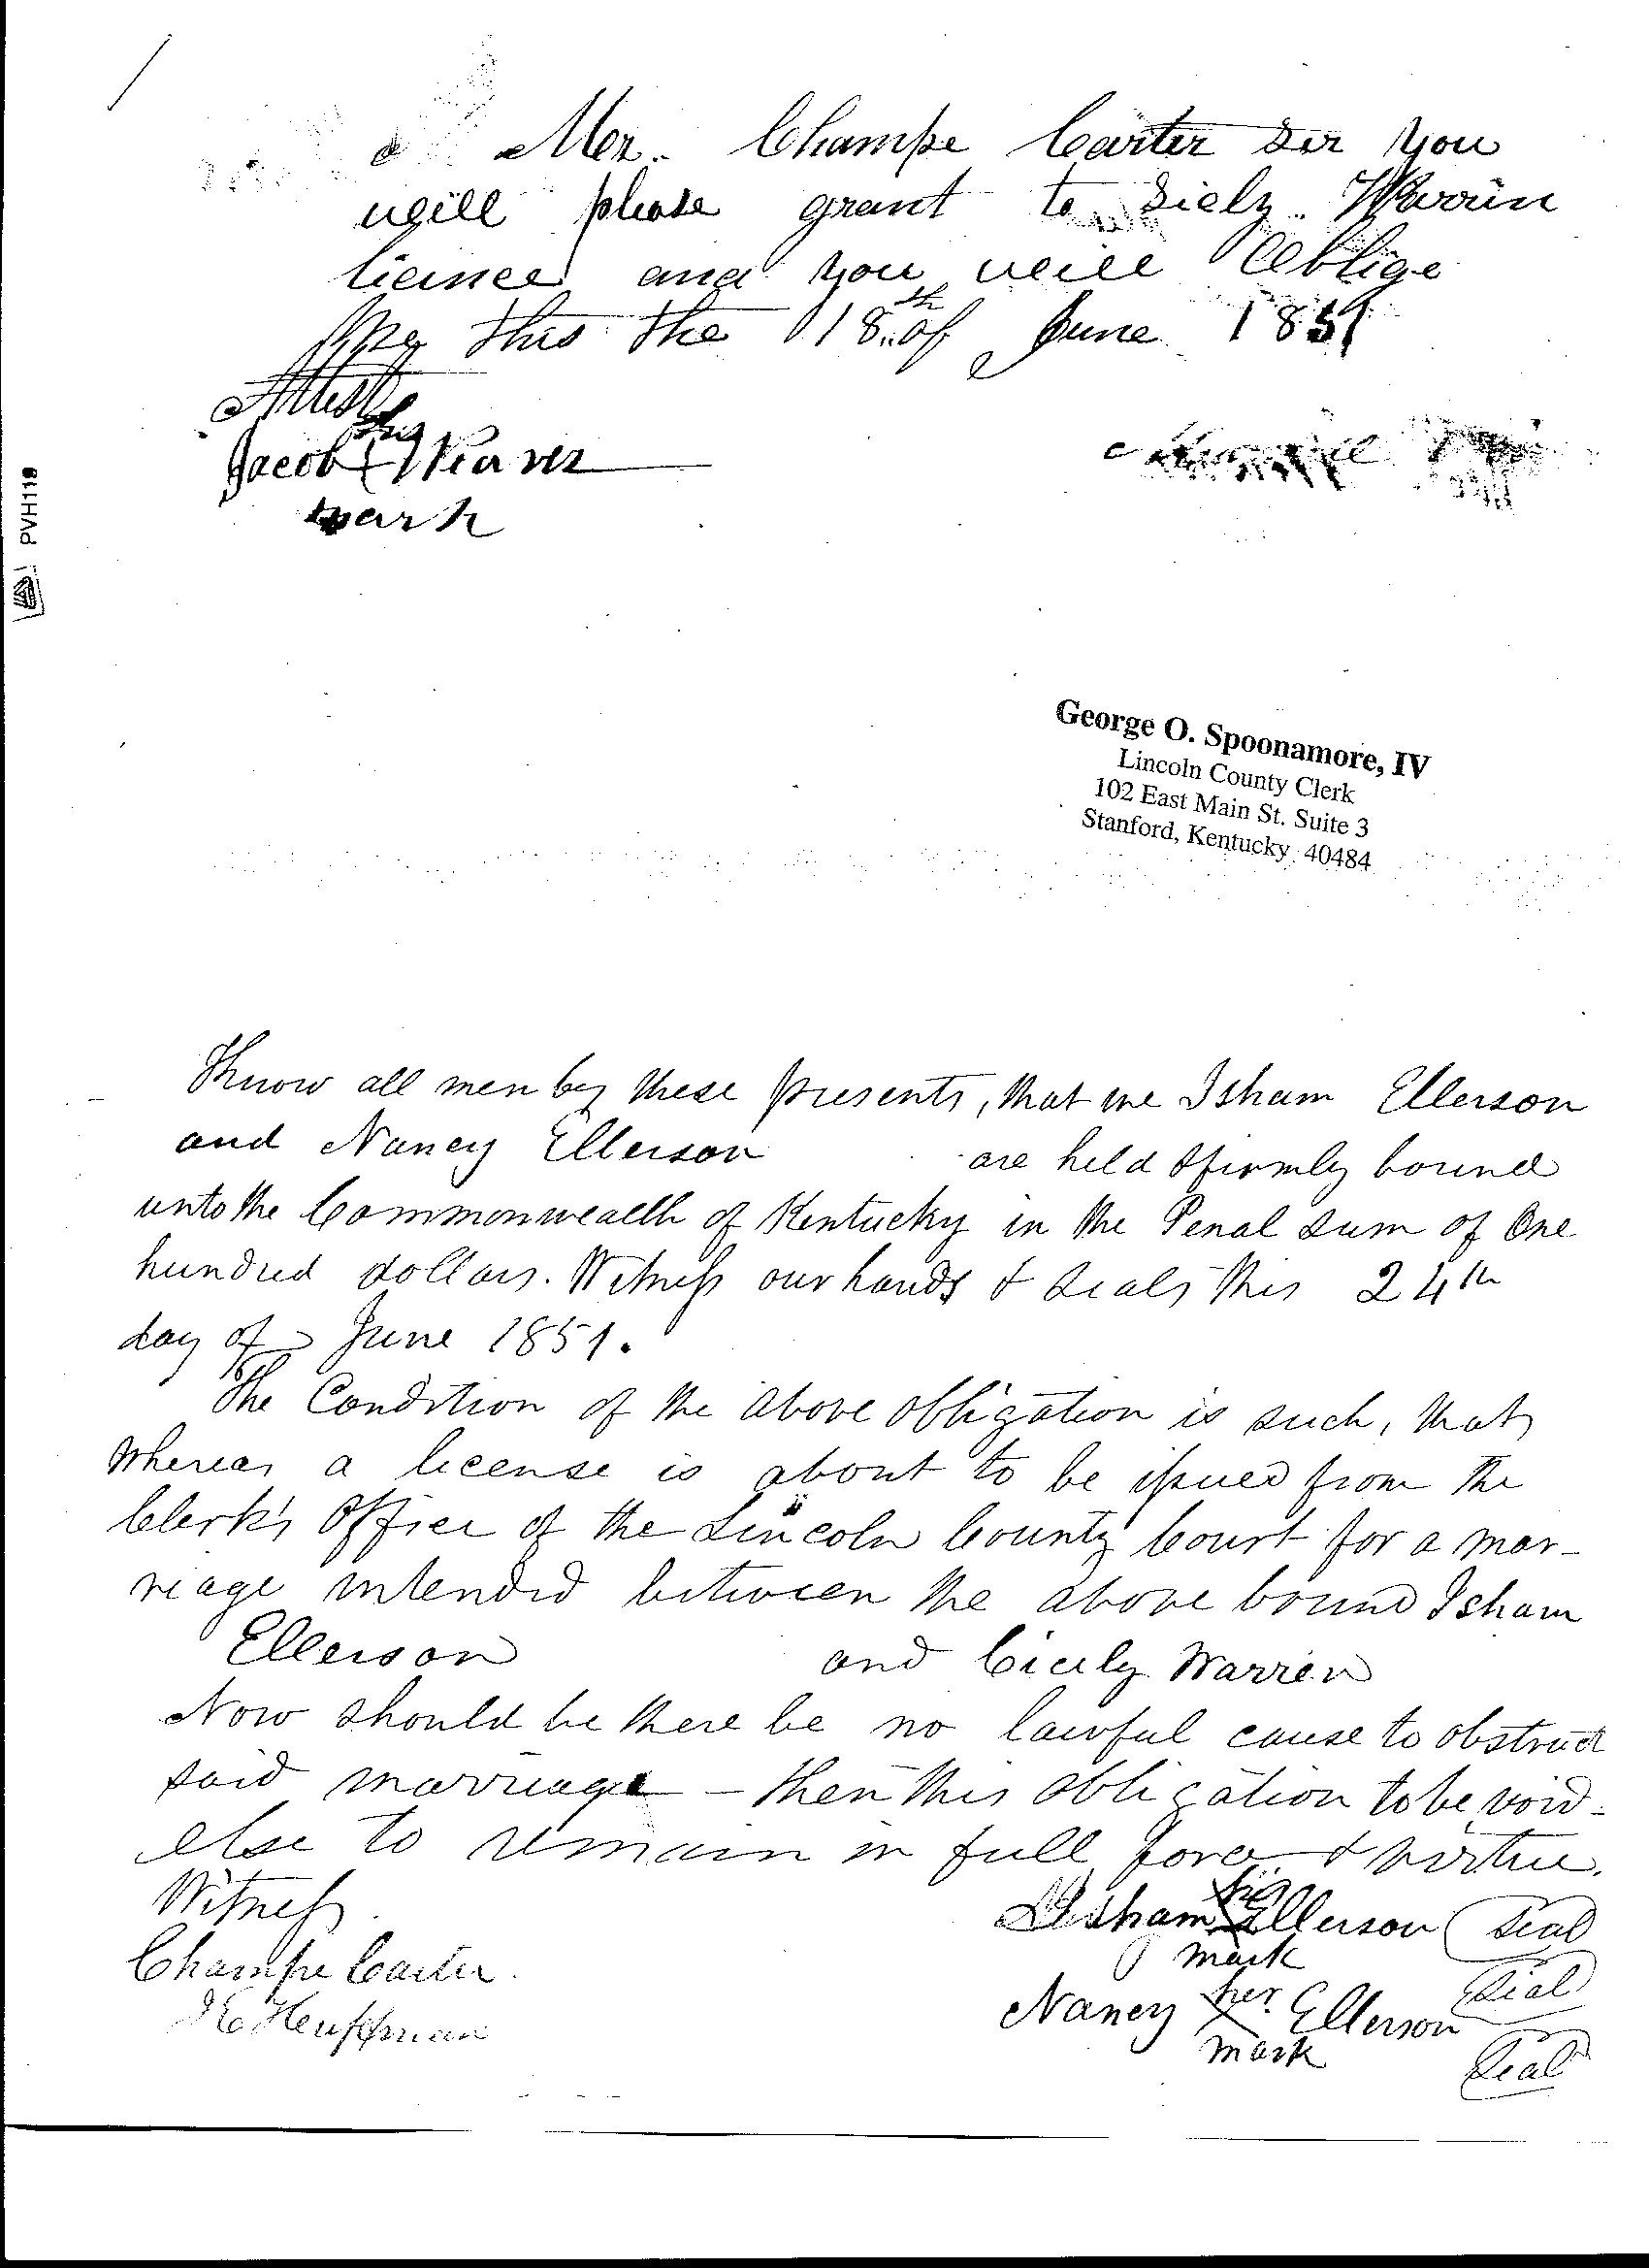 Mr. Champe Carter Sir you
will please grant to Sicly Warrin
licince and you will Oblige
Me this the 18th of June 1851
Attest
his
Jacob + Weaver
mark
PVH119
George O. Spoonamore, IV
Lincoln County Clerk
102 East Main St. Suite 3
Stanford, Kentucky 40484
Know all men by these presents, that we Isham Ellerson
and Nancy Ellerson are held & firmly bound
unto the Commonwealth of Kentucky in the Penal sum of One
hundred dollars. Witness our hands & seals this 24th
day of June 1851.
The Condition of the above obligation is such, that
Whereas a license is about to be issued from the
Clerk's Office of the Lincoln County Court for a mar-
riage intended between the above bound Isham
Ellerson and Cicily Warren
Now should be there be no lawful cause to obstruct
said marriage - then this obligation to be void -
else to remain in full force & virtue.
Witness
his
Isham X Ellerson Seal
mark
Champe Carter
her Seal
Nancy X Ellerson
mark
Seal